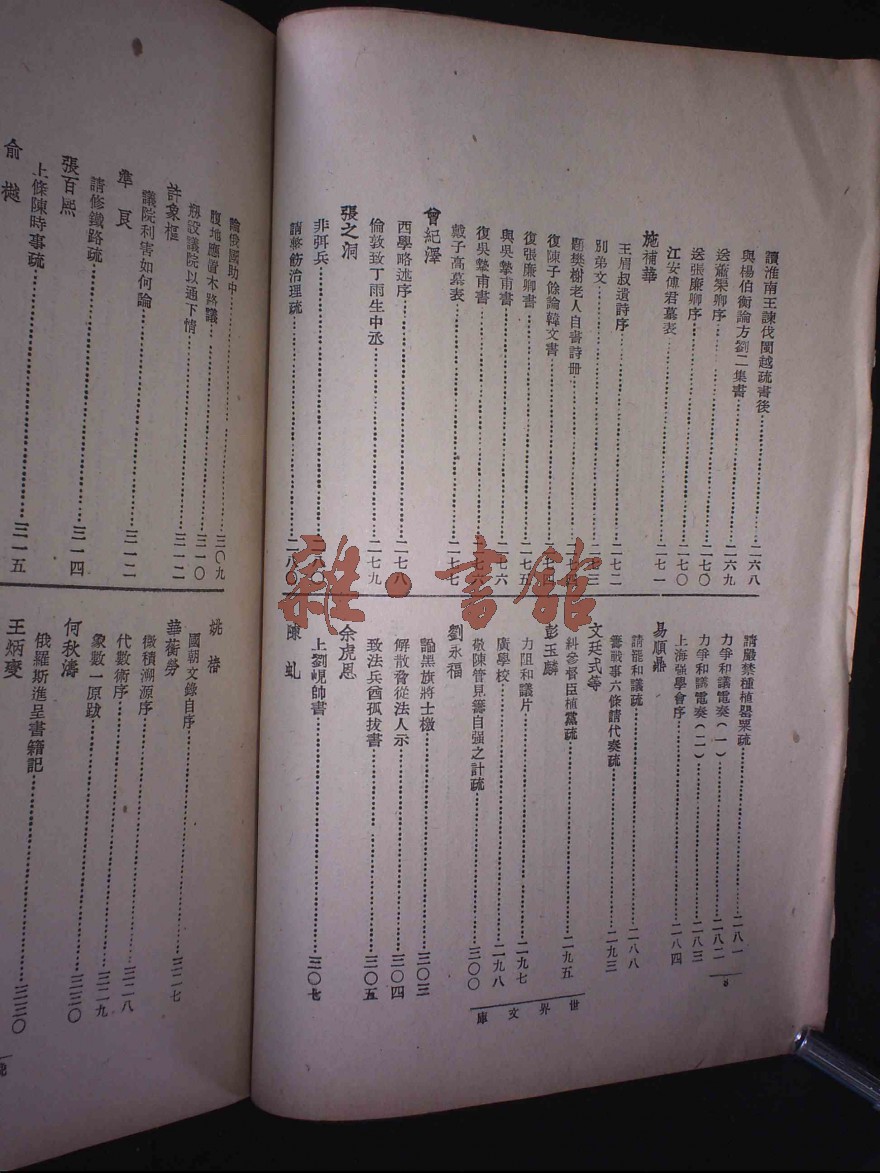 讀淮南王諫伐閩越疏書後……二六八
與楊伯衡論方劉二集書……二六九
送蕭渠卿序……二七〇
送張廉卿序……二七〇
江安傅君墓表……二七一
施補華
王眉叔遺詩序……二七二
別弟文……二七三
題樊樹老人自書詩冊……二七四
復陳子餘論韓文書……二七四
復張廉卿書……二七五
與吳摯甫書……二七六
復吳摯甫書……二七六
戴子高墓表……二七七
曾紀澤
西學略述序……二七八
倫敦致丁雨生中丞……二七九
張之洞
非弭兵……二八〇
請整飭治理疏……二八〇
請嚴禁種植罌粟疏……二八一
力爭和議電奏(一)……二八二
力爭和議電奏(二)……二八三
上海强學會序……二八四
易順鼎
請罷和議疏……二八八
文廷式等
籌戰事六條請代奏疏……二九三
彭玉麟
糾參督臣植黨疏……二九五
力阻和議片……二九七
廣學校……二九八
敬陳管見籌自强之計疏……三〇〇
劉永福
諭黑旗將士檄……三〇三
解散脅從法人示……三〇四
致法兵酋孤拔書……三〇五
余虎恩
上劉峴帥書……三〇七
陳虬
世界文庫
八
論俄國助中……三〇九
腹地應置木路議……三一〇
擬設議院以通下情……三一二
許象樞
議院利害如何論……三一二
準良
請修鐵路疏……三一四
張百熙
上條陳時事疏……三一五
俞樾
姚椿
國朝文錄自序……三二七
華蘅芳
微積溯源序……三二八
代數術序……三二九
象數一原跋……三三〇
何秋濤
俄羅斯進呈書籍記……三三〇
王炳燮
雜·書館